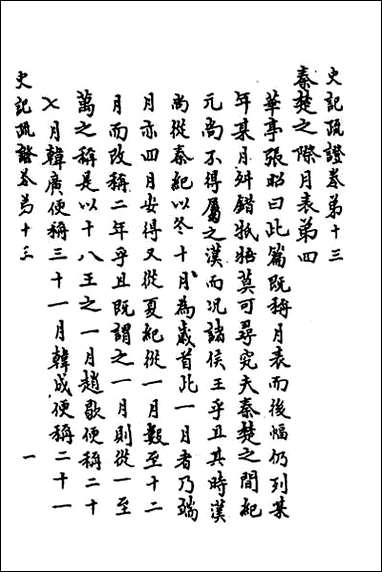 史記疏證卷第十三
秦楚之際月表第四
華亭張昭曰此篇既稱月表而後幅仍列某
年某月糾錯牴牾莫可尋究夫秦楚之間紀
元尚不得屬之漢而况諸侯王乎且其時漢
尚從秦紀以冬十月為歲首此一月者乃端
月亦四月安得又從夏紀從一月數至十二
月而改稱二年乎且既謂之一月則從一至
萬之稱是以十八王之一月趙歇便稱二十
七月韓廣便稱三十一月韓成便稱二十一
史記疏證卷第十三
一